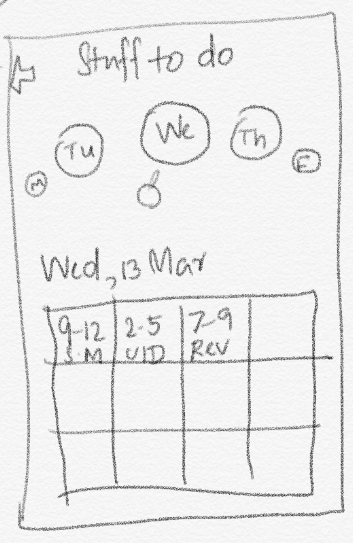 Stuff to do
M Tu We Th F
Wed, 13 Mar
9-12 2-5 7-9
S.M UID Rev